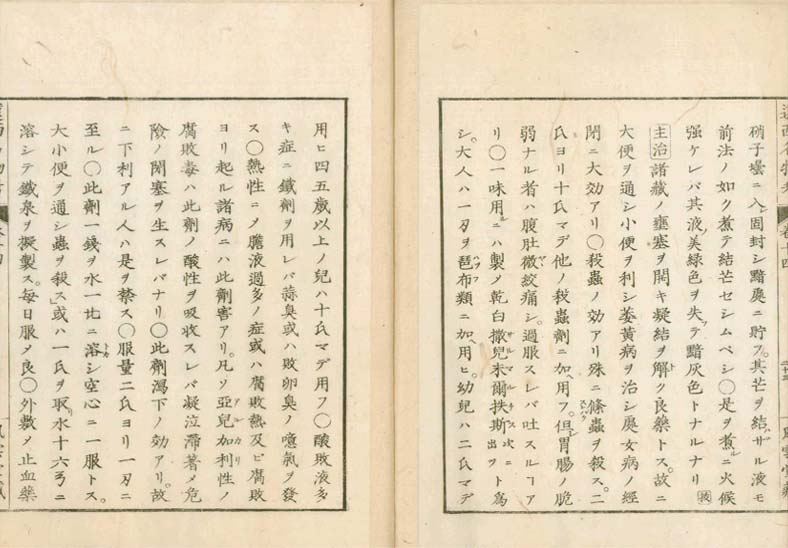 硝子壜ニ入固封シ黯處ニ貯フ。其芒ヲ結ザル液モ
前法ノ如ク煮テ結芒セシムベシ〇是ヲ煮ルニ火候
強ケレバ其液美綠色ヲ失テ黯灰色トナルナリ
主治諸藏ノ壅塞ヲ開キ凝結ヲ解ク良藥トス。故ニ
大便ヲ通シ小便ヲ利シ萎黃病ヲ治シ處女病ノ經
閉ニ大効アリ〇殺蟲ノ効アリ殊ニ條蟲ヲ殺ス。二
氏ヨリ十氏マデ他ノ殺蟲劑ニ加ヘ用フ。但シ胃腸ノ脆
弱ナル者ハ腹肚微ク絞痛シ。過服スレバ吐スルコア
リ〇一味用ルニハ製メ乾白撒兒末爾扶斯次ニ出ヅト爲
シ。大人ハ一刃ヲ琶布類ニ加ヘ用ヒ。幼兒ハ二氏マデ
用ヒ四五歲以上ノ兒ハ十氏マデ用フ〇酸敗液多
キ症ニ鐵劑ヲ用レバ蒜臭或ハ敗卵臭ノ噫氣ヲ發
ス〇熱性ニメ膽液過多ノ症或ハ腐敗熱及ビ腐敗
ヨリ起ル諸病ニハ此劑害アリ。凡ソ亞兒加利性ノ
腐敗毒ハ此劑ノ酸性ヲ吸收スレバ凝泣滯著メ危
險ノ閉塞ヲ生スレバナリ〇此劑瀉下ノ効アリ。故
ニ下利アル人ハ是ヲ禁ス〇服量二氏ヨリ一刃ニ
至ル〇此劑一錢ヲ水一匕ニ溶シ空心ニ一服トス。
大小便ヲ通シ蟲ヲ殺ス」或ハ一氏ヲ取リ水十六ヲニ
溶シテ鐵泉ヲ擬製ス。每日服メ良〇外敷メ止血藥